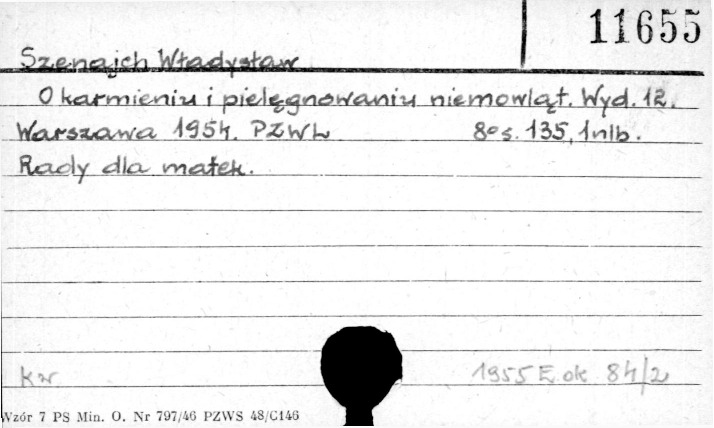 11655
Szenajch Władysław
O karmieniu i pielęgnowaniu niemowląt. Wyd. 12.
Warszawa 1954. PZWL 8° s. 135, 1nlb.
Rady dla matek.
kw 1955 E. ok 84/2
Wzór 7 PS Min. O. Nr 797/46 PZWS 48/C146